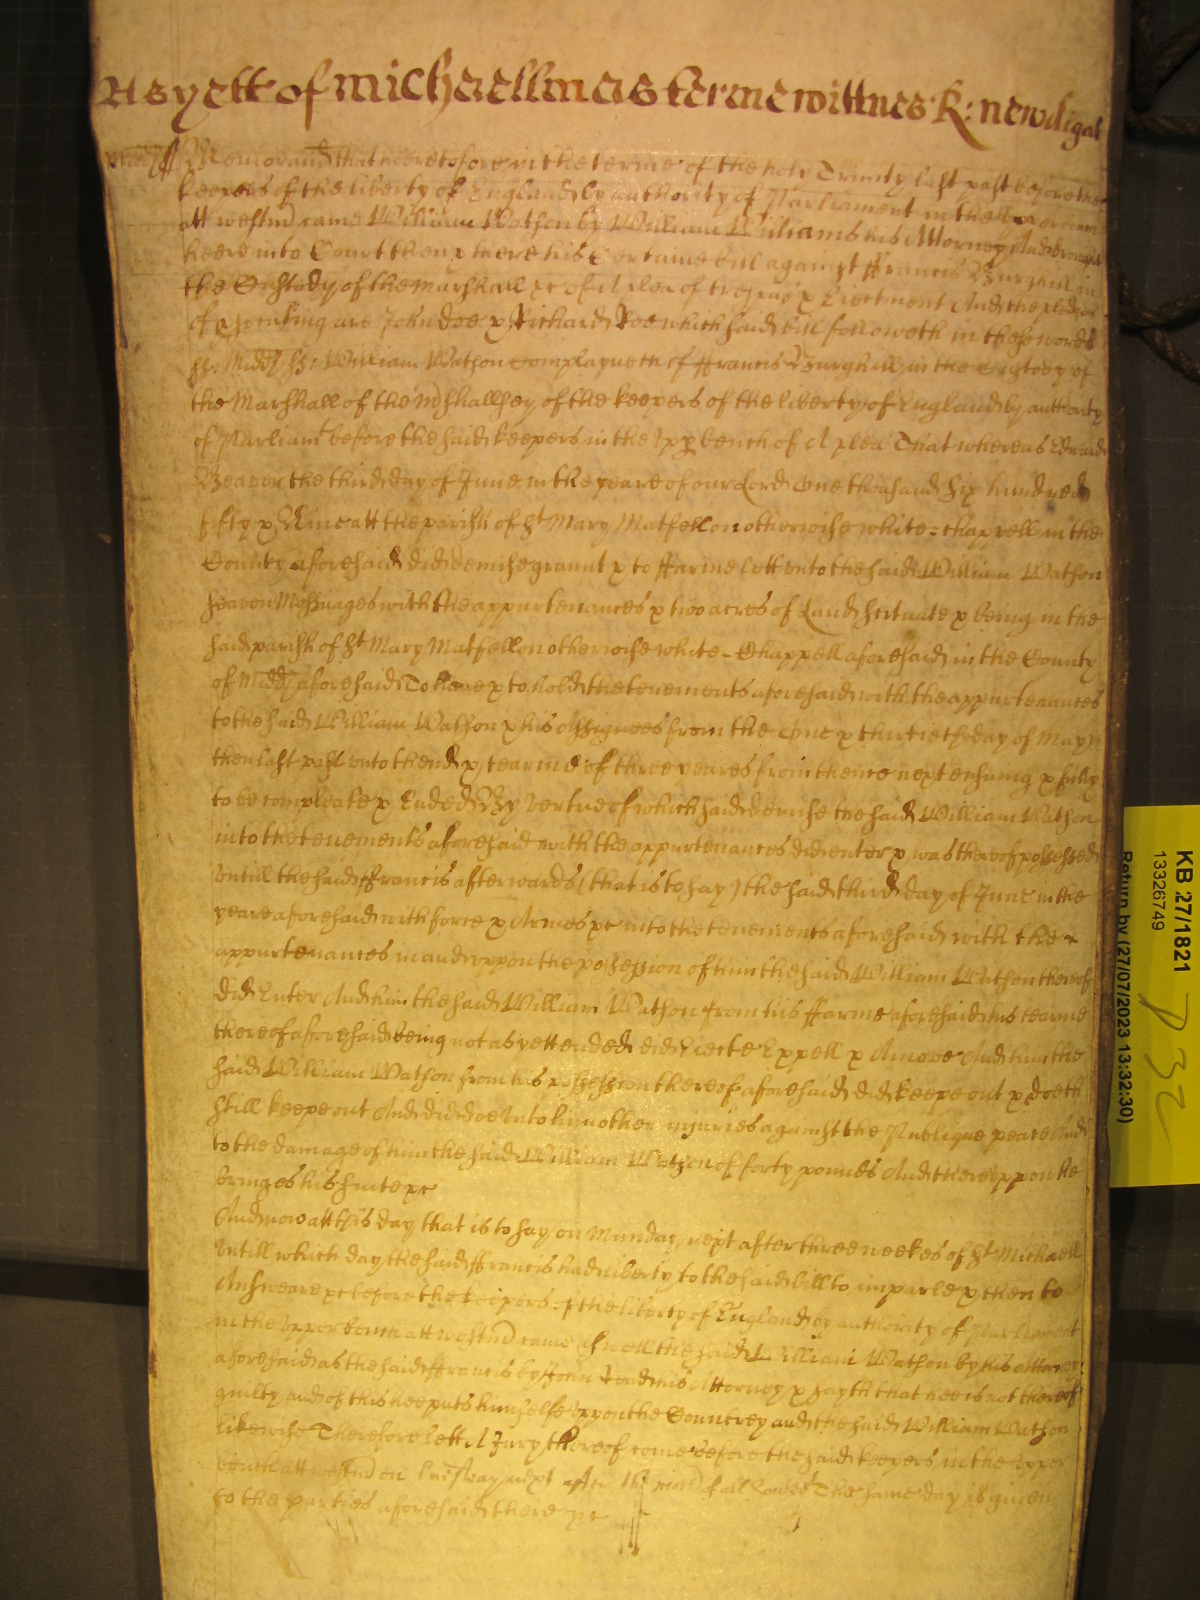 As yett of Michaellmas terme wittnes R: Newdigat
Midd ss Memorand that heretofore in the terme of the holy Trinity last past before the
keepers of the liberty of England by authority of Parliament in the Upper bench
att Westm came William Watson by William Williams his Attorney And brought
heere into Court then & there his Certaine bill against ffrancis Burghill in
the Custody of the Marshall &c of A plea of trespas & Eiectment And the pledges
of prosecuting are John doe & Richard Roe which said bill followeth in these words
ss: Midd ss: William Watson Complayneth of ffrancis Burghill in the Custody of
the Marshall of the Mshallsey of the keepers of the liberty of England by authority
of Parliamt before the said keepers in the Upp bench of A plea That whereas Edward
Beavor the third day of June in the yeare of our Lord One thousand Six hundred
fifty & Nine att the parish of St Mary Matfellon otherwise white=chappell in the
County aforesaid did demise graunt & to ffarme lett unto the said William Watson
seaven Messuages with the appurtenances & two acres of Land scituate & being in the
said parish of St Mary Matfellon otherwise white-Chappell aforesaid in the County
of Midd aforesaid To have & to hold the tenements aforesaid with the appurtenances
to the said William Watson & his Assignees from the One & thirtieth day of May
then last past unto thend & tearme of three yeares from thence next ensuing & fully
to be compleate & Ended By vertue of which said demise the said William Watson
into the tenements aforesaid with the appurtenances did enter & was thereof possessed
Untill the said ffrancis afterwards (that is to say) the said third day of June in the
yeare aforesaid with force & Armes &c into the tenements aforesaid with the
appurtenances in and uppon the possession of him the said William Watson thereof
did Enter And him the said William Watson from his ffarme aforesaid his tearme
thereof aforesaid being not as yett ended did Eiecte Expell & Amove And him the
said William Watson from his possession thereof aforesaid did keepe out & doeth
still keepe out And did doe Unto him other iniuries against the Publique peace And
to the damage of him the said William Watson of forty pounds And thereuppon he
bringes his suite &c
And now att this day that is to say on Munday next after three weekes of St Michaell
Untill which day the said ffrancis had liberty to the said bill to imparle & then to
Answeare &c before the keepers of the liberty of England by authority of Parliament
in the Upper bench att Westm came aswell the said William Watson by his Attorney
aforesaid as the said ffrancis by John Read his Attorney & sayth that hee is not thereof
guilty and of this hee puts himselfe uppon the Countrey and the said William Watson
likewise Therefore lett A Jury thereof come before the said keepers in the Upper
bench att Westm on tuesday next after the morr of all soules The same day is given
to the parties aforesaid there &c
KB 27/1821
13326749
Return by (27/07/2023 13:32:30)
P 32